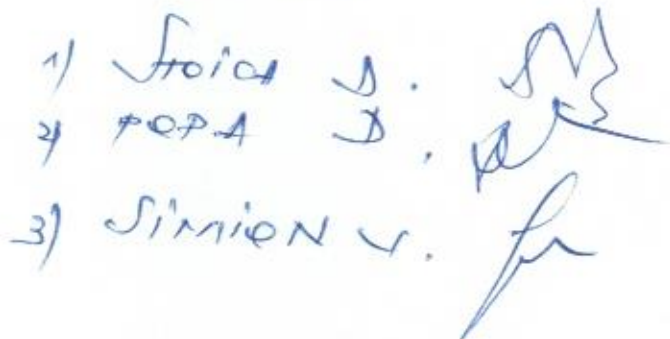 1) Stoica S.
2) POPA D.
3) SIMION V.